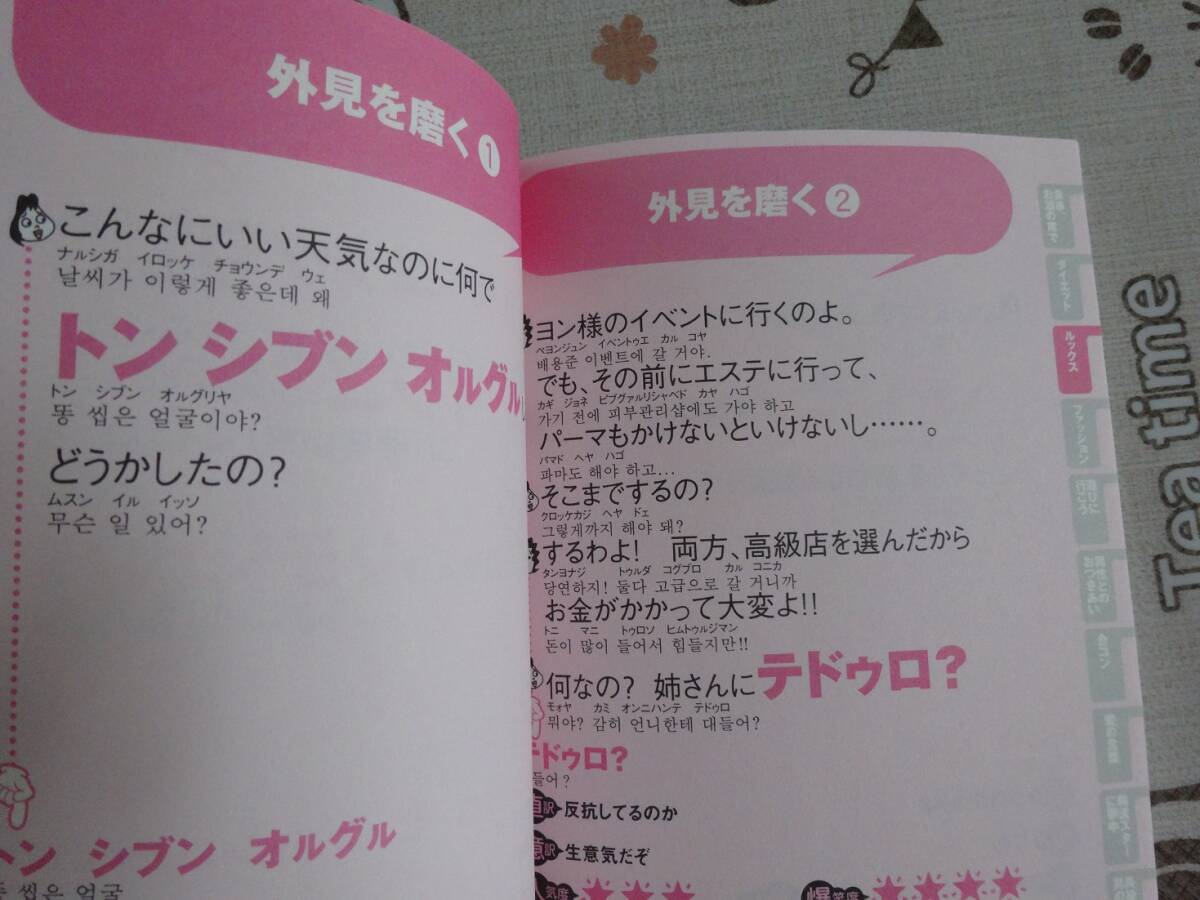 外見を磨く❶
こんなにいい天気なのに何で
ナルシガ イロッケ チョウンデ ウェ
날씨가 이렇게 좋은데 왜
トン シブン オルグル
トン シブン オルグリヤ
똥 씹은 얼굴이야?
どうかしたの?
ムスン イル イッソ
무슨 일 있어?
トン シブン オルグル
씹은 얼굴
外見を磨く❷
ヨン様のイベントに行くのよ。
ペヨンジュン イベントゥエ カル コヤ
배용준 이벤트에 갈 거야.
でも、その前にエステに行って、
カギ ジョネ ピブグァルリシャペド カヤ ハゴ
가기 전에 피부관리샵에도 가야 하고
パーマもかけないといけないし……。
パマド ヘヤ ハゴ
파마도 해야 하고...
そこまでするの?
クロッケカジ ヘヤ ドェ
그렇게까지 해야 돼?
するわよ! 両方、高級店を選んだから
タンヨナジ トゥルダ コグプロ カル コニカ
당연하지! 둘다 고급으로 갈 거니까
お金がかかって大変よ!!
トニ マニ トゥロソ ヒムトゥルジマン
돈이 많이 들어서 힘들지만!!
何なの? 姉さんにテドゥロ?
モォヤ カミ オンニハンテ テドゥロ
뭐야? 감히 언니한테 대들어?
テドゥロ?
들어?
直訳 反抗してるのか
意訳 生意気だぞ
気度 ★★★
爆笑度 ★★★★
ダイエット
ルックス
ファッション
遊びに行こう
異性とのおつきあい
合コン
Tea time